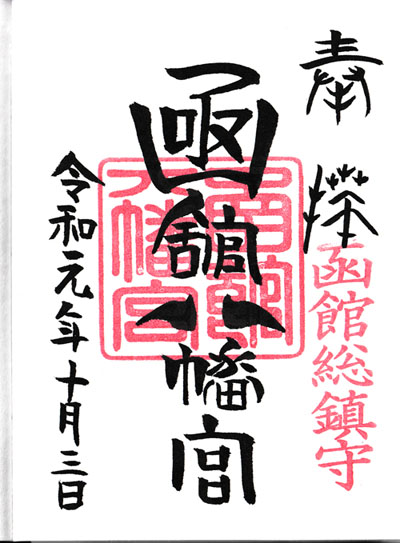 奉拝
函館総鎮守
函館八幡宮
函館八幡宮
令和元年十月三日